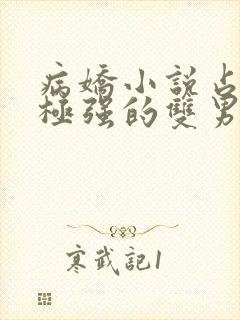 病嬌小說占
極強的雙男
寒武記1